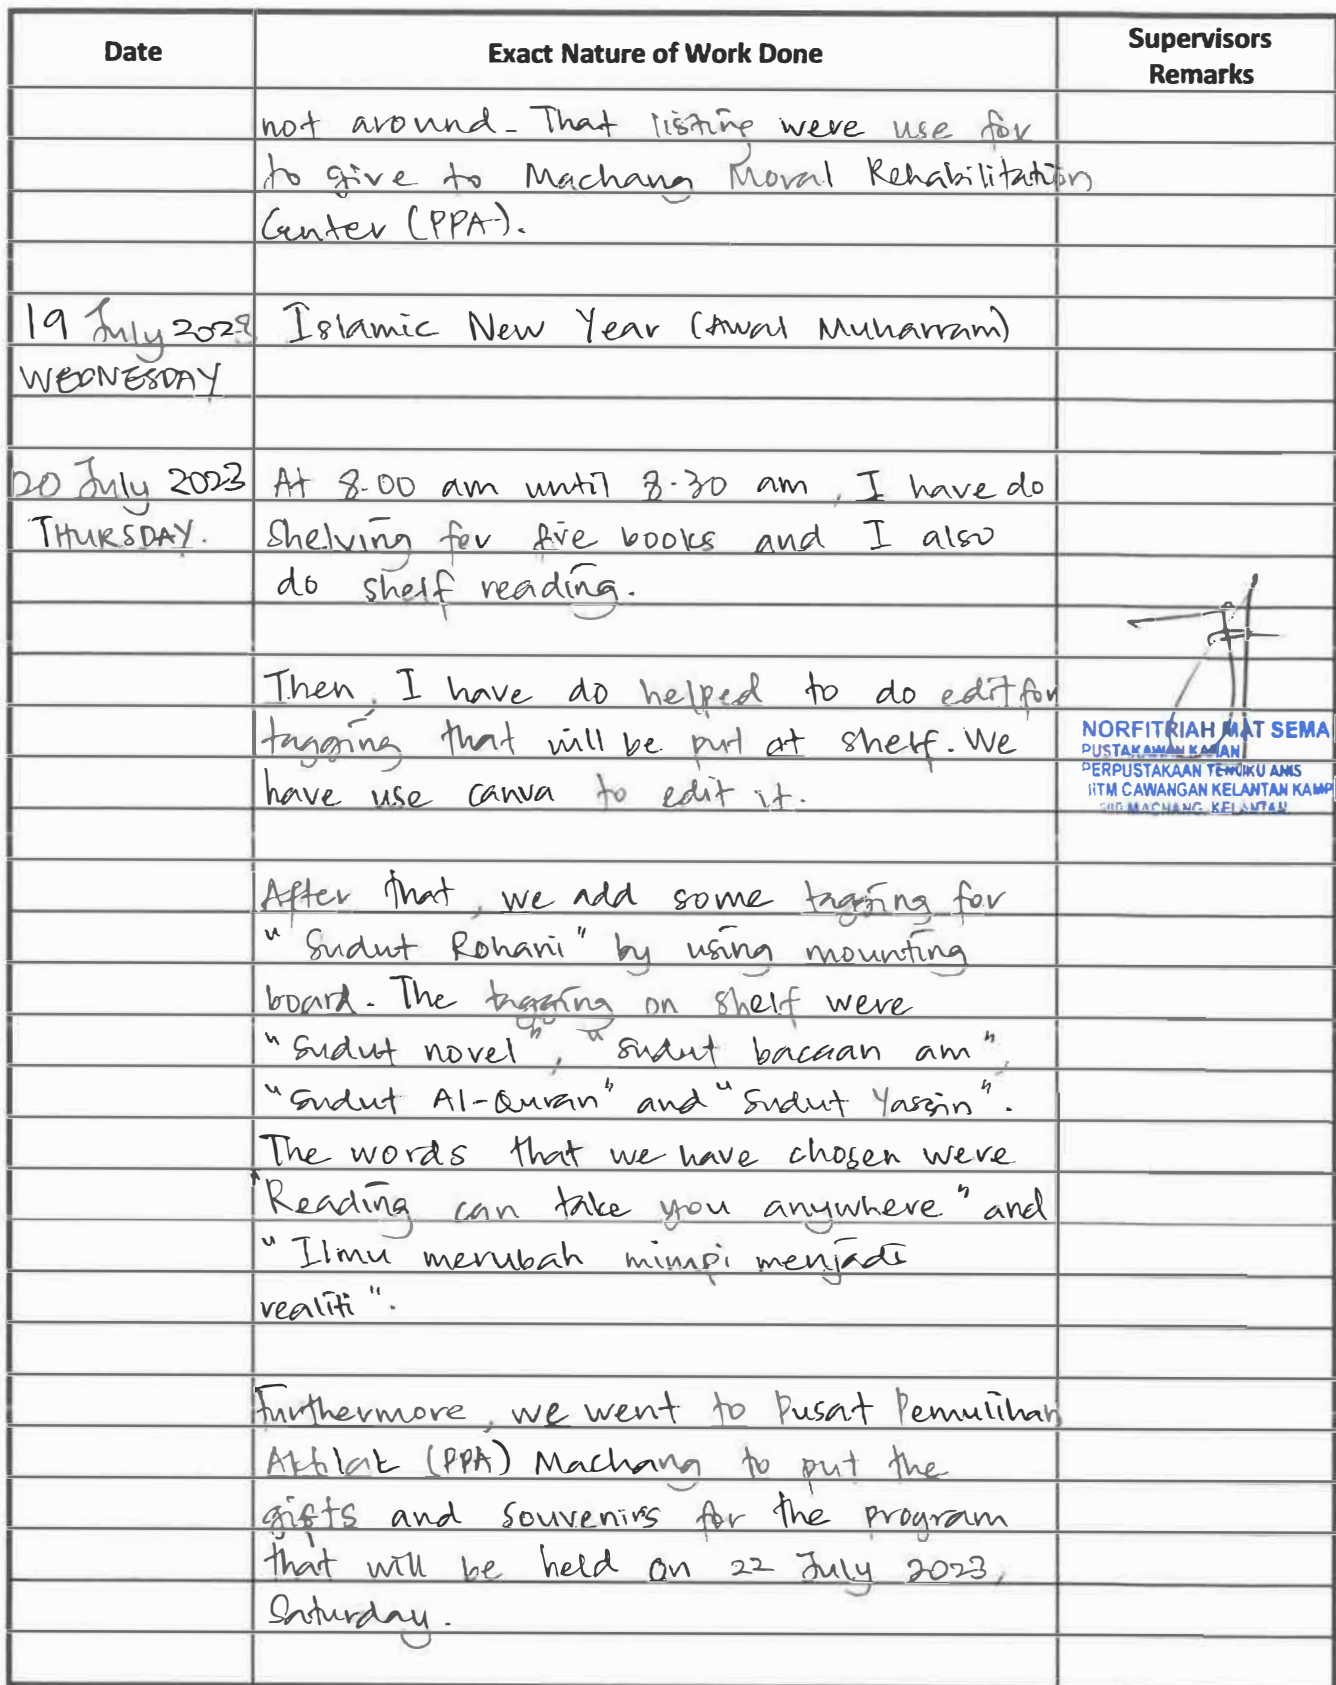 Date
Exact Nature of Work Done
Supervisors
Remarks
not around. That listing were use for
to give to Machang Moral Rehabilitation
Center (PPA).
19 July 2023
WEDNESDAY
Islamic New Year (Awal Muharram)
20 July 2023
THURSDAY.
At 8.00 am until 8.30 am, I have do
shelving for five books and I also
do shelf reading.
Then, I have do helped to do edit for
tagging that will be put at shelf. We
have use canva to edit it.
NORFITRIAH MAT SEMA
PUSTAKAWAN KANAN
PERPUSTAKAAN TENGKU ANIS
UiTM CAWANGAN KELANTAN KAMP
MACHANG, KELANTAN
After that, we add some tagging for
"Sudut Rohani" by using mounting
board. The tagging on shelf were
"Sudut novel", "Sudut bacaan am",
"Sudut Al-Quran" and "Sudut Yassin".
The words that we have chosen were
"Reading can take you anywhere" and
"Ilmu merubah mimpi menjadi
realiti".
Furthermore, we went to Pusat Pemulihan
Akhlak (PPA) Machang to put the
gifts and souvenirs for the program
that will be held on 22 July 2023,
Saturday.